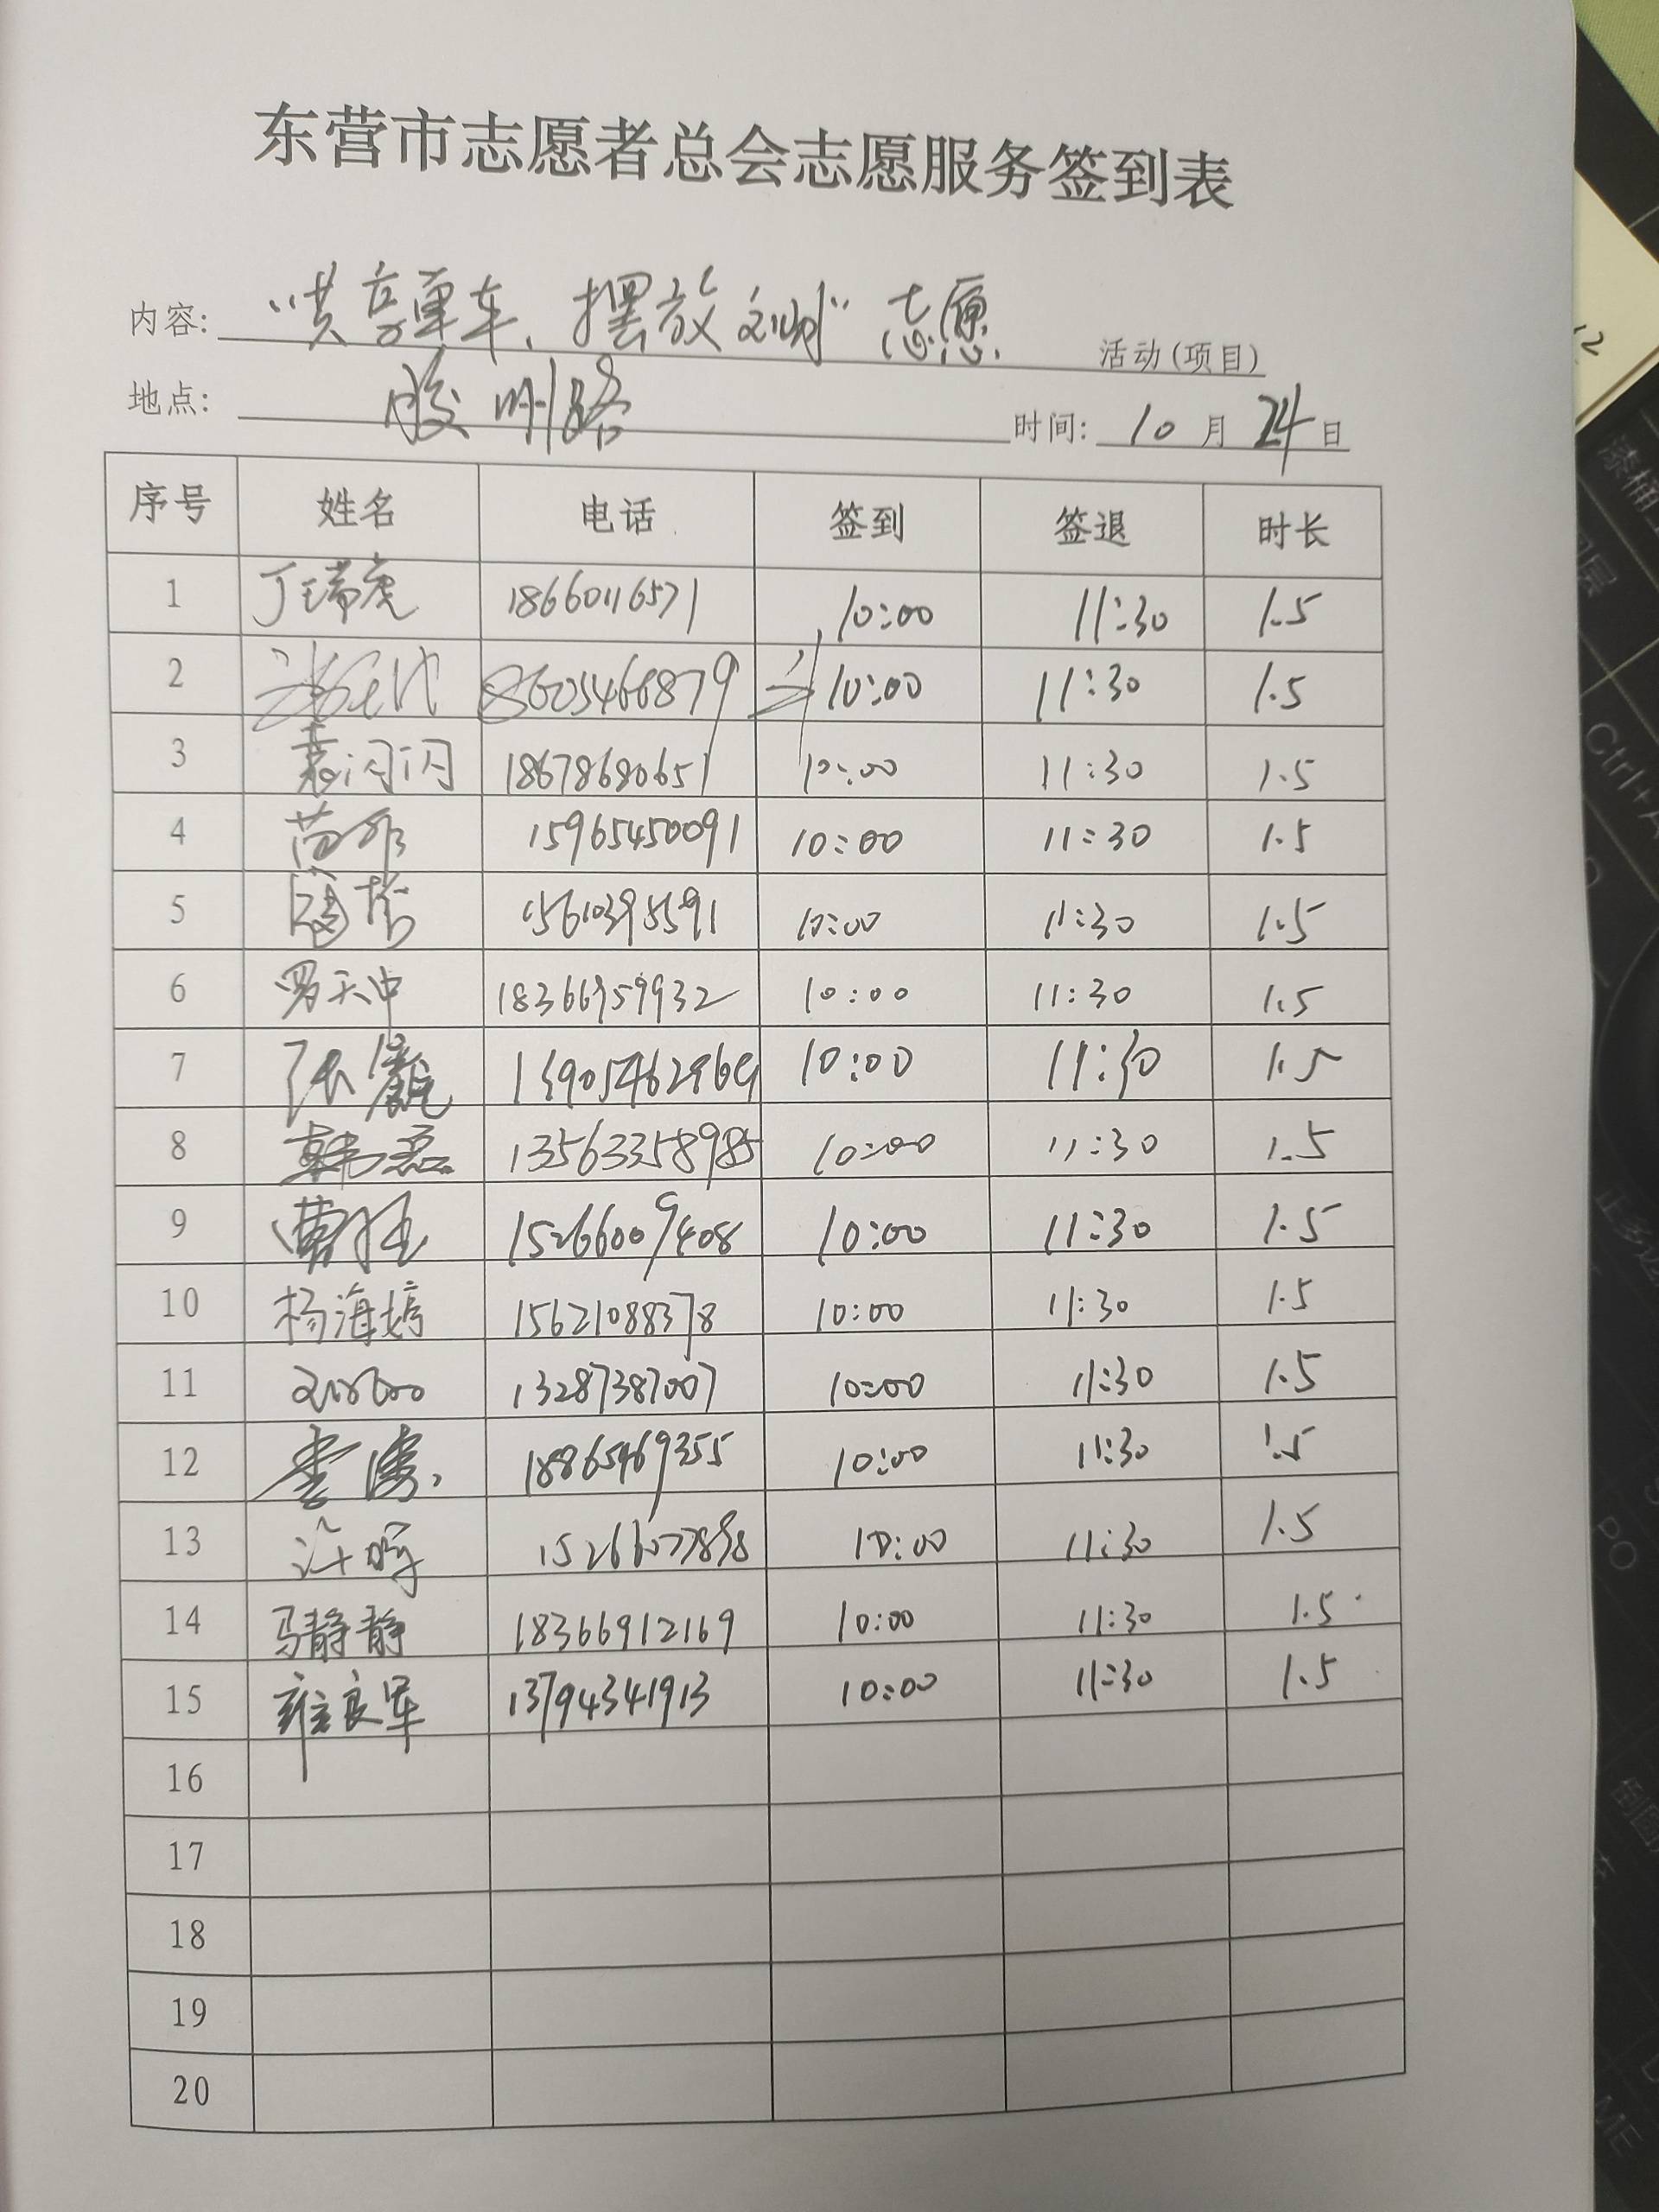 东营市志愿者总会志愿服务签到表
内容: "共享单车、摆放文明"志愿 活动(项目)
地点: 胶州路 时间: 10 月 24 日
序号 姓名 电话 签到 签退 时长
1 丁瑞虎 18660116571 10:00 11:30 1.5
2 18605466879 10:00 11:30 1.5
3 袁闪闪 18678680651 10:00 11:30 1.5
4 苗 15965450091 10:00 11:30 1.5
5 15610395591 10:00 11:30 1.5
6 罗天中 18366959932 10:00 11:30 1.5
7 张 13905462969 10:00 11:30 1.5
8 韩磊 13563358985 10:00 11:30 1.5
9 曹 15266009408 10:00 11:30 1.5
10 杨海婷 15621088378 10:00 11:30 1.5
11 13287387007 10:00 11:30 1.5
12 李涛 18865469355 10:00 11:30 1.5
13 10:00 11:30 1.5
14 马静静 18366912169 10:00 11:30 1.5
15 雍良军 13794341913 10:00 11:30 1.5
16
17
18
19
20